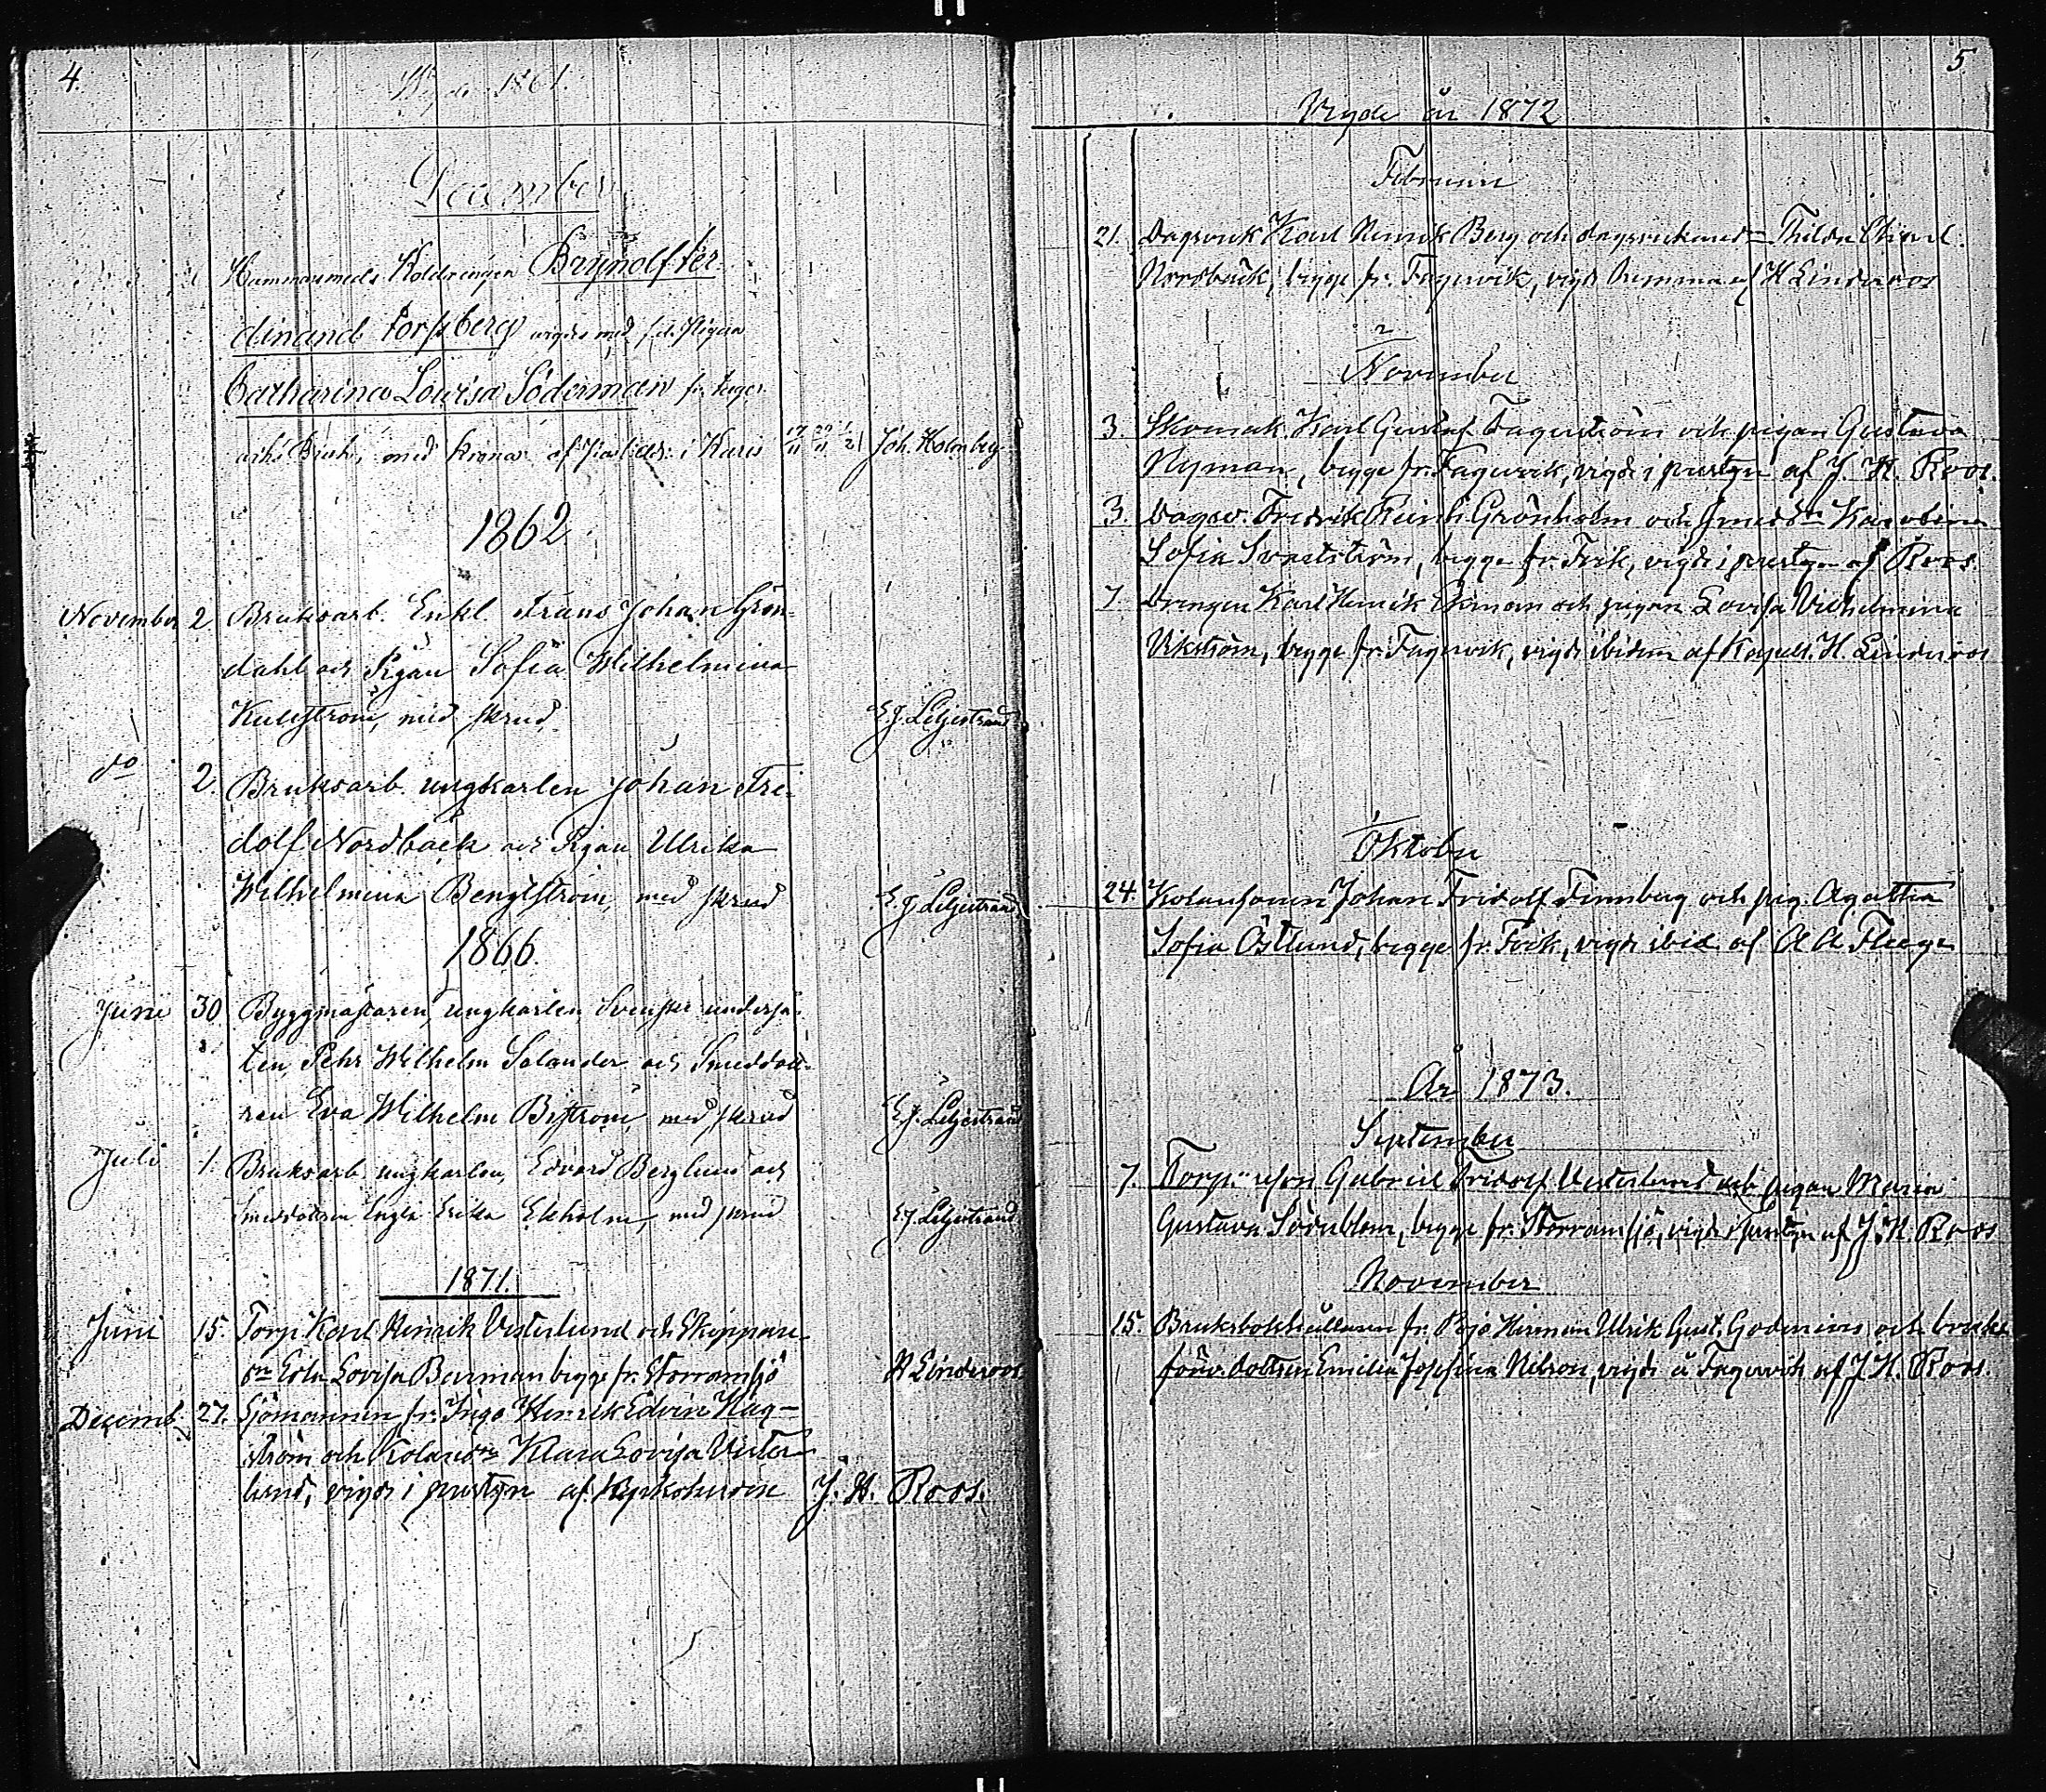 4.
1861.
December
Hammarsmeds Koldrengen Brynolf Fer-
dinand Forssberg med Pigan
Catharina Lovisa Söderman fr. Fager-
Bruk, med krona af i Karis Joh. Holmberg
1862
November 2. Bruksarb. Enkl. Frans Johan Grön-
dahl och Pigan Sofia Wilhelmina
Kullström, med skrud E. J. Liljestrand
do 2. Bruksarb. ungkarlen Johan Fri-
dolf Nordback och Pigan Ulrika
Wilhelmina Bengtström, med skrud E. J. Liljestrand
1866.
Juni 30 Byggmästaren, ungkarlen, Svenske underså-
ten, Pehr Wilhelm Solander och Smeddott-
ren Eva Wilhelm Byström, med skrud E. J. Liljestrand
Juli 1. Bruksarb. ungkarlen, Edvard Berglund och
Smeddottren Engla Erika Ekholm, med skrud E J. Liljestrand
1871.
Juni 15. Torp. Karl Henrik Vesterlund och Skeppare-
dn Eda Lovisa Berman begge fr. Storramsjö H Linderoos
Decemb. 27. Sjömannen fr. Ingo Henrik Edvin Hag-
ström och Kolaredn Klara Lovisa Vester-
lund, vigde i prestgn af Kyrkoherden J. H. Roos.
5
Vigde år 1872
Februari
21. Dagsverk. Karl Henrik Berg och Thilda
Nordbäck, begge fr. Fagervik, vigde hemma af H Linderoos
November
3. Skomak. Karl Gustaf Fagerström och pigan Gustava
Nyman, begge fr. Fagervik, vigde i prestgn af J. H. Roos.
3. Dagsv. Fredrik Reinh. Grönholm och smeddn Karolina
Sofia begge fr. Fvik, vigde i prestgn af Roos.
7 Drengen Karl Henrik Ekman och pigan Lovisa Vilhelmina
Vikström, begge fr. Fagervik, vigde ibidem af Kapell. H. Linderoos
Oktober
24. Kolaresonen Johan Fridolf Finnberg och pig. Agatha
Sofia Östlund, begge fr. Fvik, vigde ibid. af A A Fleege
År 1873.
September
7. Torp. son Gabriel Fridolf Vesterlund och pigan Maria
Gustava Söderblom, begge fr. Storramsjö, vigde i prestgn af J. H. Roos
November
15. Bruksbokhållaren fr. Pojo Herman Ulrik Gust. Godenius och bruks
förv. dottren Emilia Josefina Nelson, vigde å Fagervik af J H. Roos.